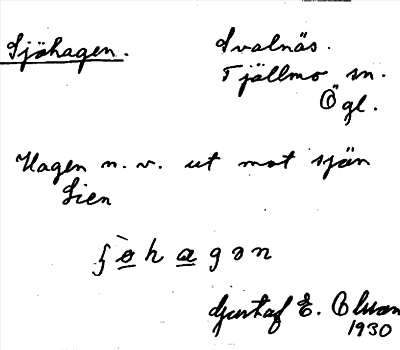 Sjöhagen.
Svalnäs.
Tjällmo sn.
Ögl.
Hagen n. v. ut mot sjön
Lien
ʃòhagən
Gustaf E. Olsson
1930